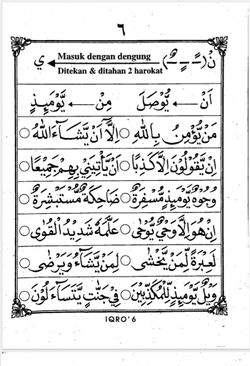 ٦
نْ (ـًـ ـٍـ ـٌـ) Masuk dengan dengung ي
Ditekan & ditahan 2 harokat
اَنْ يُّوْصَلَ مِنْ يَّوْمَئِذٍ
مَنْ يُّؤْمِنْۢ بِاللّٰهِ ○ اِلَّآ اَنْ يَّشَآءَ اللّٰهُ ○
اِنْ يَّقُوْلُوْنَ اِلَّا كَذِبًا ○ اَنْ يَّأْتِيَنِيْ بِهِمْ جَمِيْعًا ○
وُجُوْهٌ يَّوْمَئِذٍ مُّسْفِرَةٌ ○ ضَاحِكَةٌ مُّسْتَبْشِرَةٌ ○
اِنْ هُوَ اِلَّا وَحْيٌ يُّوْحٰى ○ عَلَّمَهٗ شَدِيْدُ الْقُوٰى ○
لَعِبْرَةً لِّمَنْ يَّخْشٰى ○ لِمَنْ يَّشَآءُ وَيَرْضٰى ○
وَيْلٌ يَّوْمَئِذٍ لِّلْمُكَذِّبِيْنَ ○ فِيْ جَنّٰتٍ يَّتَسَآءَلُوْنَ ○
IQRO' 6